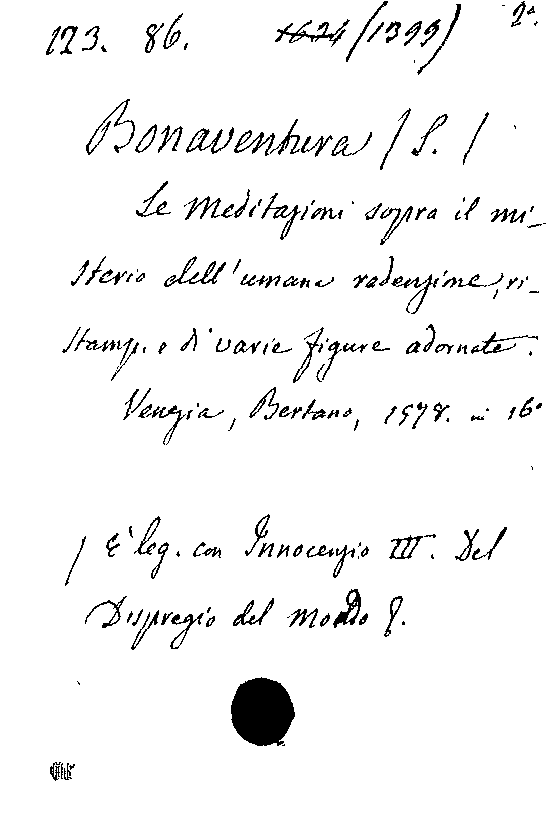 123. 86. 1624 (1399) 2ª.
Bonaventura (S.)
Le Meditazioni sopra il mi-
sterio dell'umana redenzione, ri-
stamp. e di varie figure adornate.
Venezia, Bertano, 1578. in 16°
( È leg. con Innocenzio III. Del
Dispregio del mondo